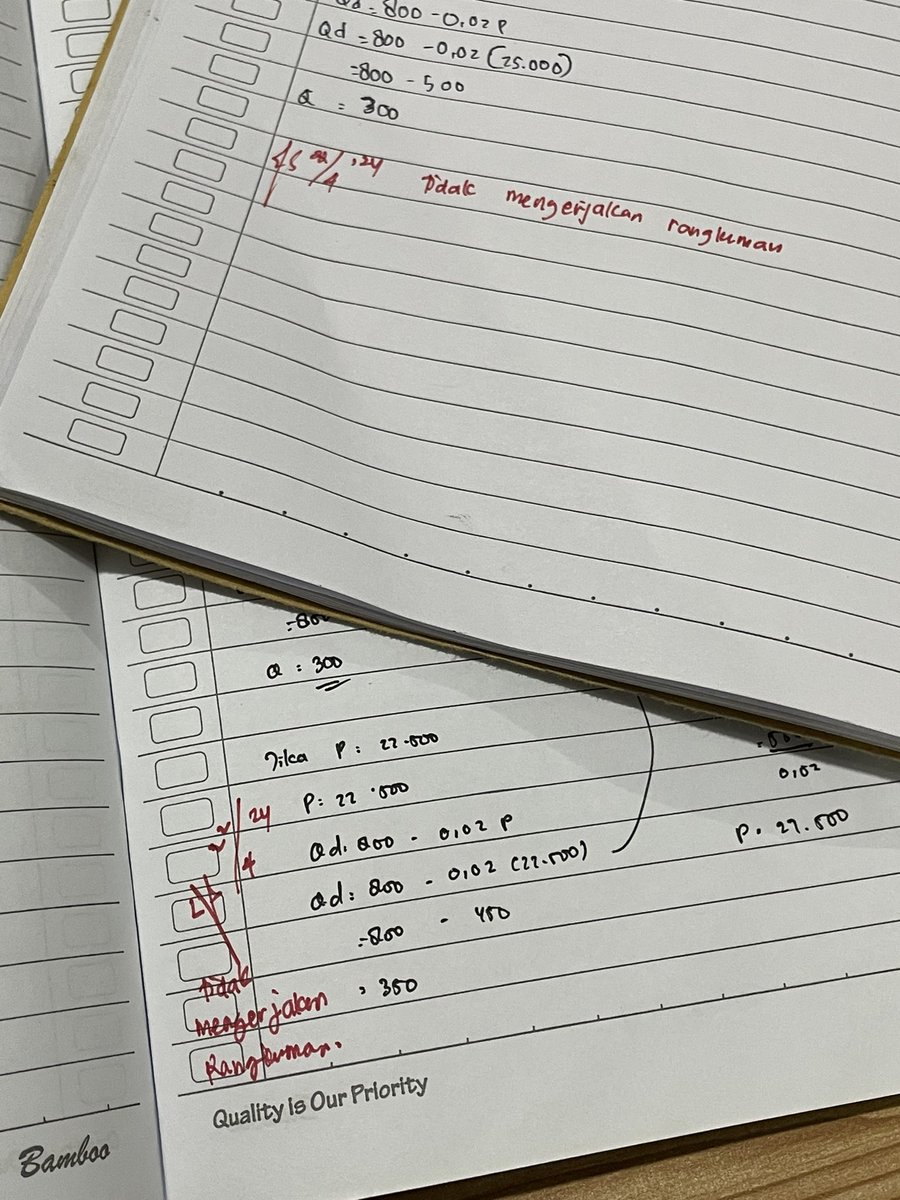 Qd = 800 - 0,02 P
Qd = 800 - 0,02 (25.000)
= 800 - 500
Q = 300
Tidak mengerjakan rangkuman
Q : 300
Jika P : 22.500
P : 22.500
Qd : 800 - 0,02 P
Qd : 800 - 0,02 (22.500)
= 800 - 450
: 350
0,02
P. 27.500
24
4
Tidak
mengerjakan
Rangkuman.
Quality is Our Priority
Bamboo